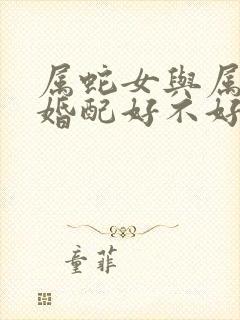 属蛇女與属
婚配好不好
童菲